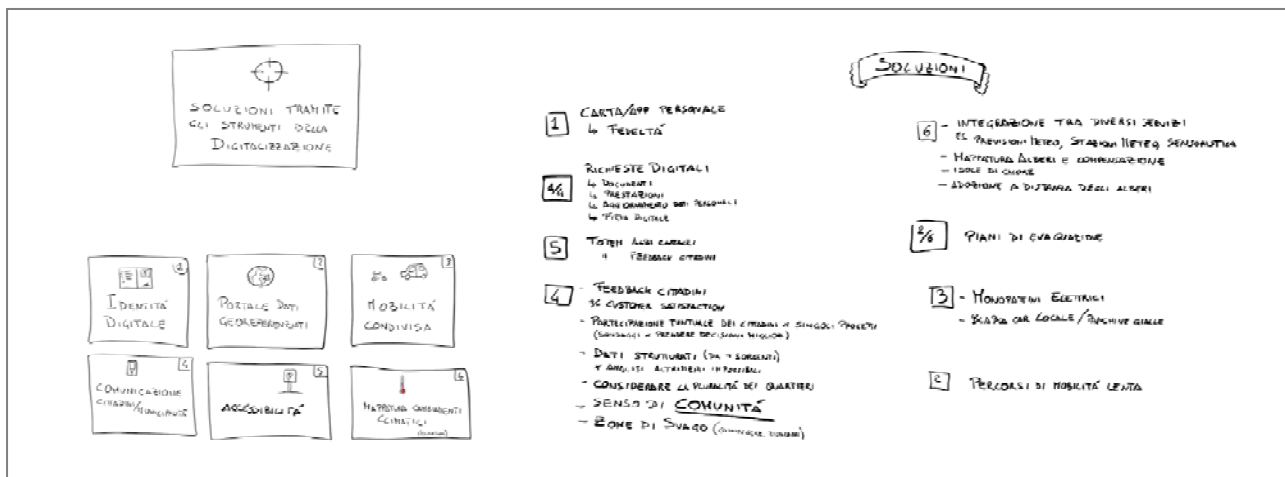 SOLUZIONI TRAMITE
GLI STRUMENTI DELLA
DIGITALIZZAZIONE
1
IDENTITÁ
DIGITALE
2
PORTALE DATI
GEOREFERENZIATI
3
MOBILITÁ
CONDIVISA
4
COMUNICAZIONE
CITTADINI/
5
ACCESSIBILITÁ
6
MAPPATURA CAMBIAMENTI
CLIMATICI
1
CARTA/APP PERSONALE
FEDELTÁ
RICHIESTE DIGITALI
DOCUMENTI
PRESTAZIONI
AGGIORNAMENTO DATI PERSONALI
DIGITALE
5
TOTEM
FEEDBACK CITTADINI
4
- FEEDBACK CITTADINI
CUSTOMER SATISFACTION
- PARTECIPAZIONE PUNTUALE DEI CITTADINI SINGOLI PROGETTI
(SONDAGGI PRENDERE DECISIONI MIGLIORI)
- DATI STRUTTURATI (DA SORGENTI)
ANALISI ALTRIMENTI IMPOSSIBILI
- CONSIDERARE LA PLURALITÁ DEI QUARTIERI
- SENSO DI COMUNITÁ
- ZONE DI SVAGO
SOLUZIONI
6
- INTEGRAZIONE TRA DIVERSI SERVIZI
ES PREVISIONI METEO, STAZIONI METEO, SENSORISTICA
- MAPPATURA ALBERI E COMPENSAZIONE
- ISOLE DI CALORE
- ADOZIONE A DISTANZA DEGLI ALBERI
2/6
PIANI DI EVACUAZIONE
3
- MONOPATTINI ELETTRICI
- CAR LOCALE/PANCHINE GIALLE
2
PERCORSI DI MOBILITÁ LENTA